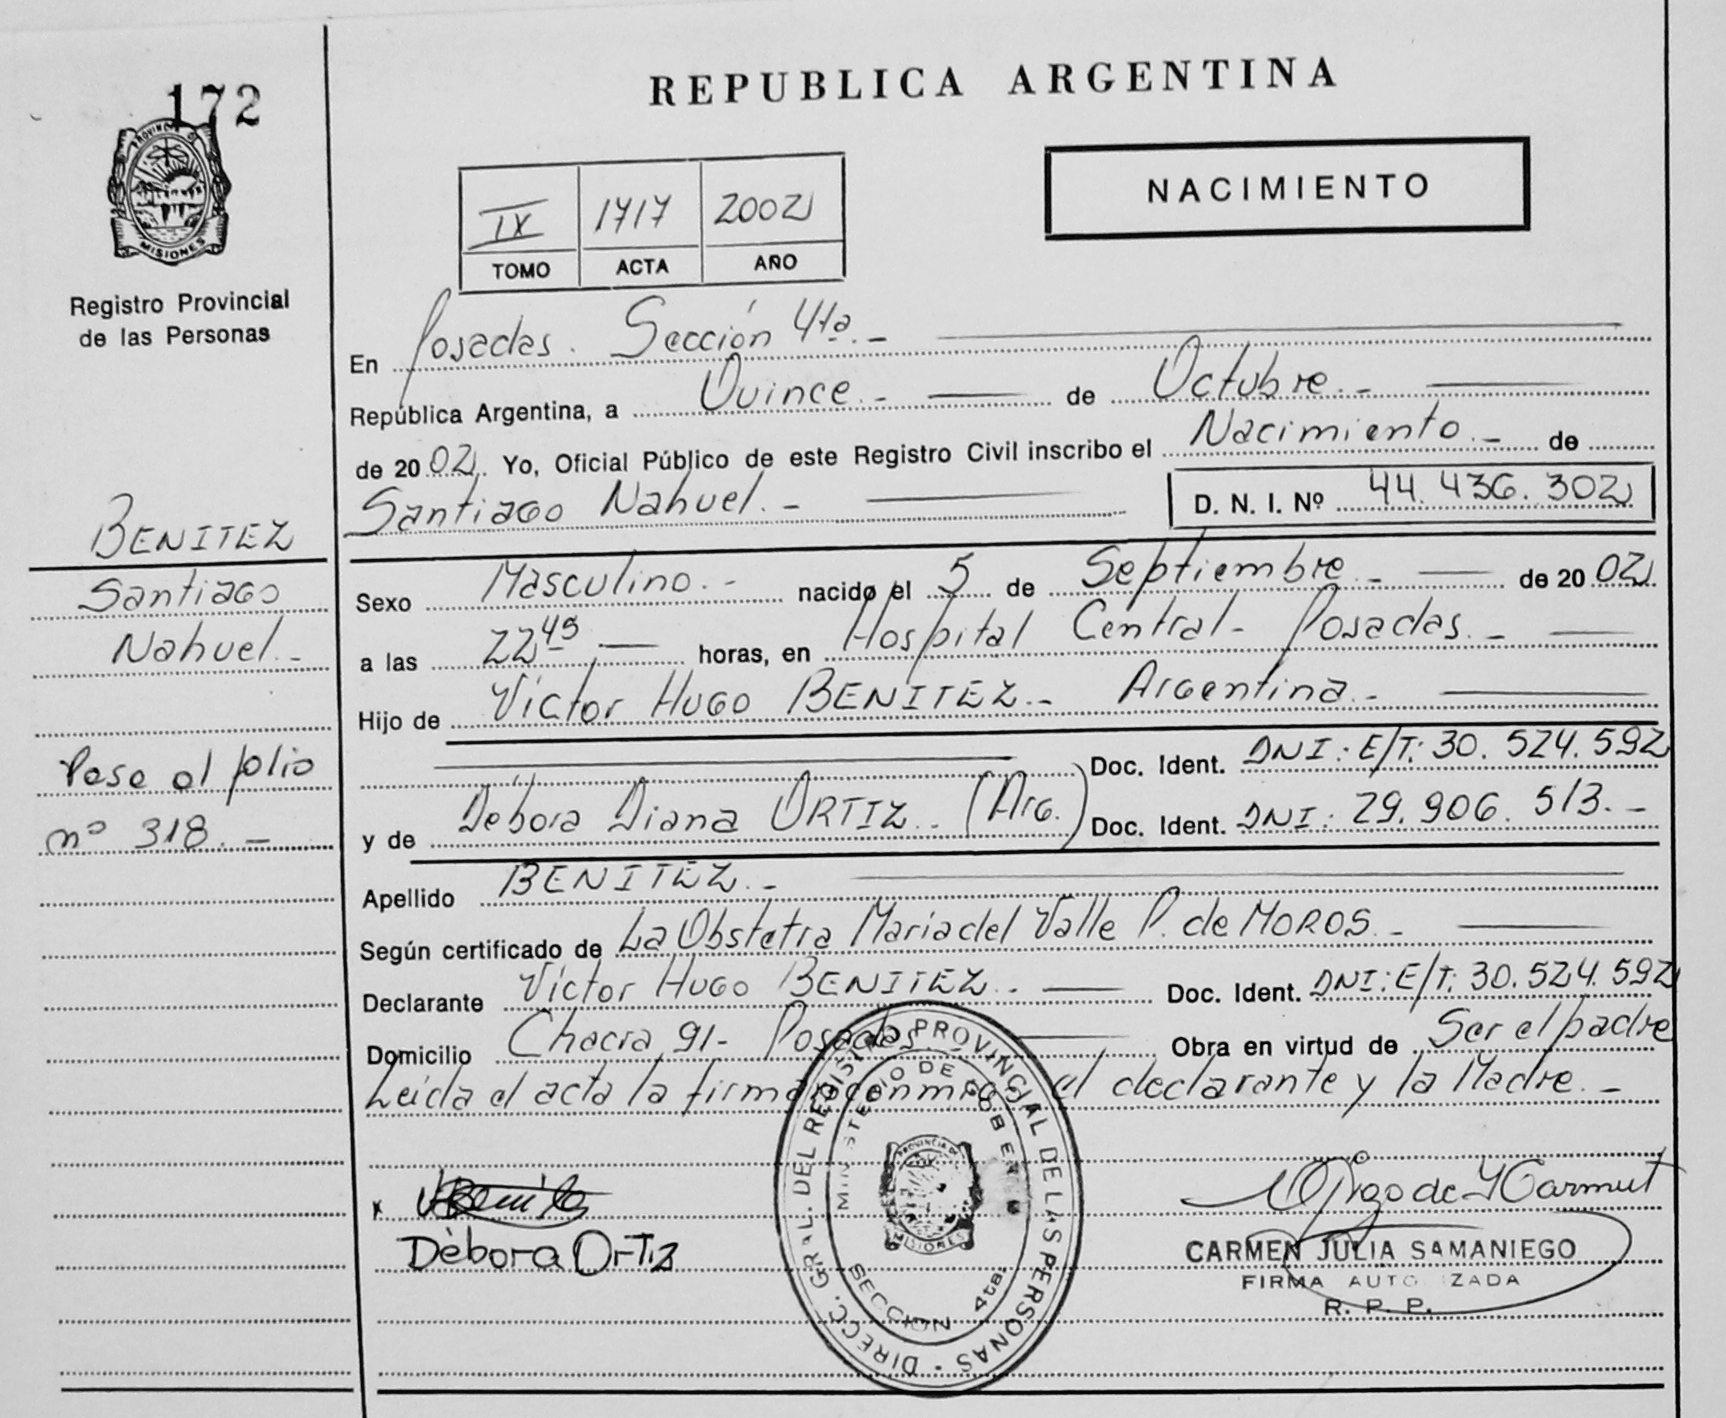 172
PROVINCIA DE
MISIONES
Registro Provincial
de las Personas
REPUBLICA ARGENTINA
IX 1717 2002
TOMO ACTA AÑO
NACIMIENTO
En Posadas. Sección 4ta.-
República Argentina, a Quince.- de Octubre.-
de 2002. Yo, Oficial Público de este Registro Civil inscribo el Nacimiento.- de
Santiago Nahuel.- D. N. I. Nº 44.436.302
BENITEZ
Santiago
Nahuel.-
Pase al folio
nº 318.-
Sexo Masculino.- nacido el 5 de Septiembre.- de 2002
a las 22 45 horas, en Hospital Central- Posadas.-
Hijo de Víctor Hugo BENITEZ.- Argentina.-
Doc. Ident. DNI: E/T: 30.524.592
y de Débora Diana ORTIZ.. (Arg.) Doc. Ident. DNI: 29.906.513.-
Apellido BENITEZ.-
Según certificado de La Obstetra María del Valle P. de MOROS.-
Declarante Víctor Hugo BENITEZ.- Doc. Ident. DNI: E/T: 30.524.592
Domicilio Chacra 91- Posadas Obra en virtud de Ser el padre
Leída el acta la firman conmigo el declarante y la Madre.-
DIRECC. GRAL. DEL REGISTRO PROVINCIAL DE LAS PERSONAS
MINISTERIO DE GOBIERNO
PROVINCIA DE
MISIONES
SECCION 4ta.
x
Dèbora OrTiz
CARMEN JULIA SAMANIEGO
FIRMA AUTORIZADA
R. P. P.